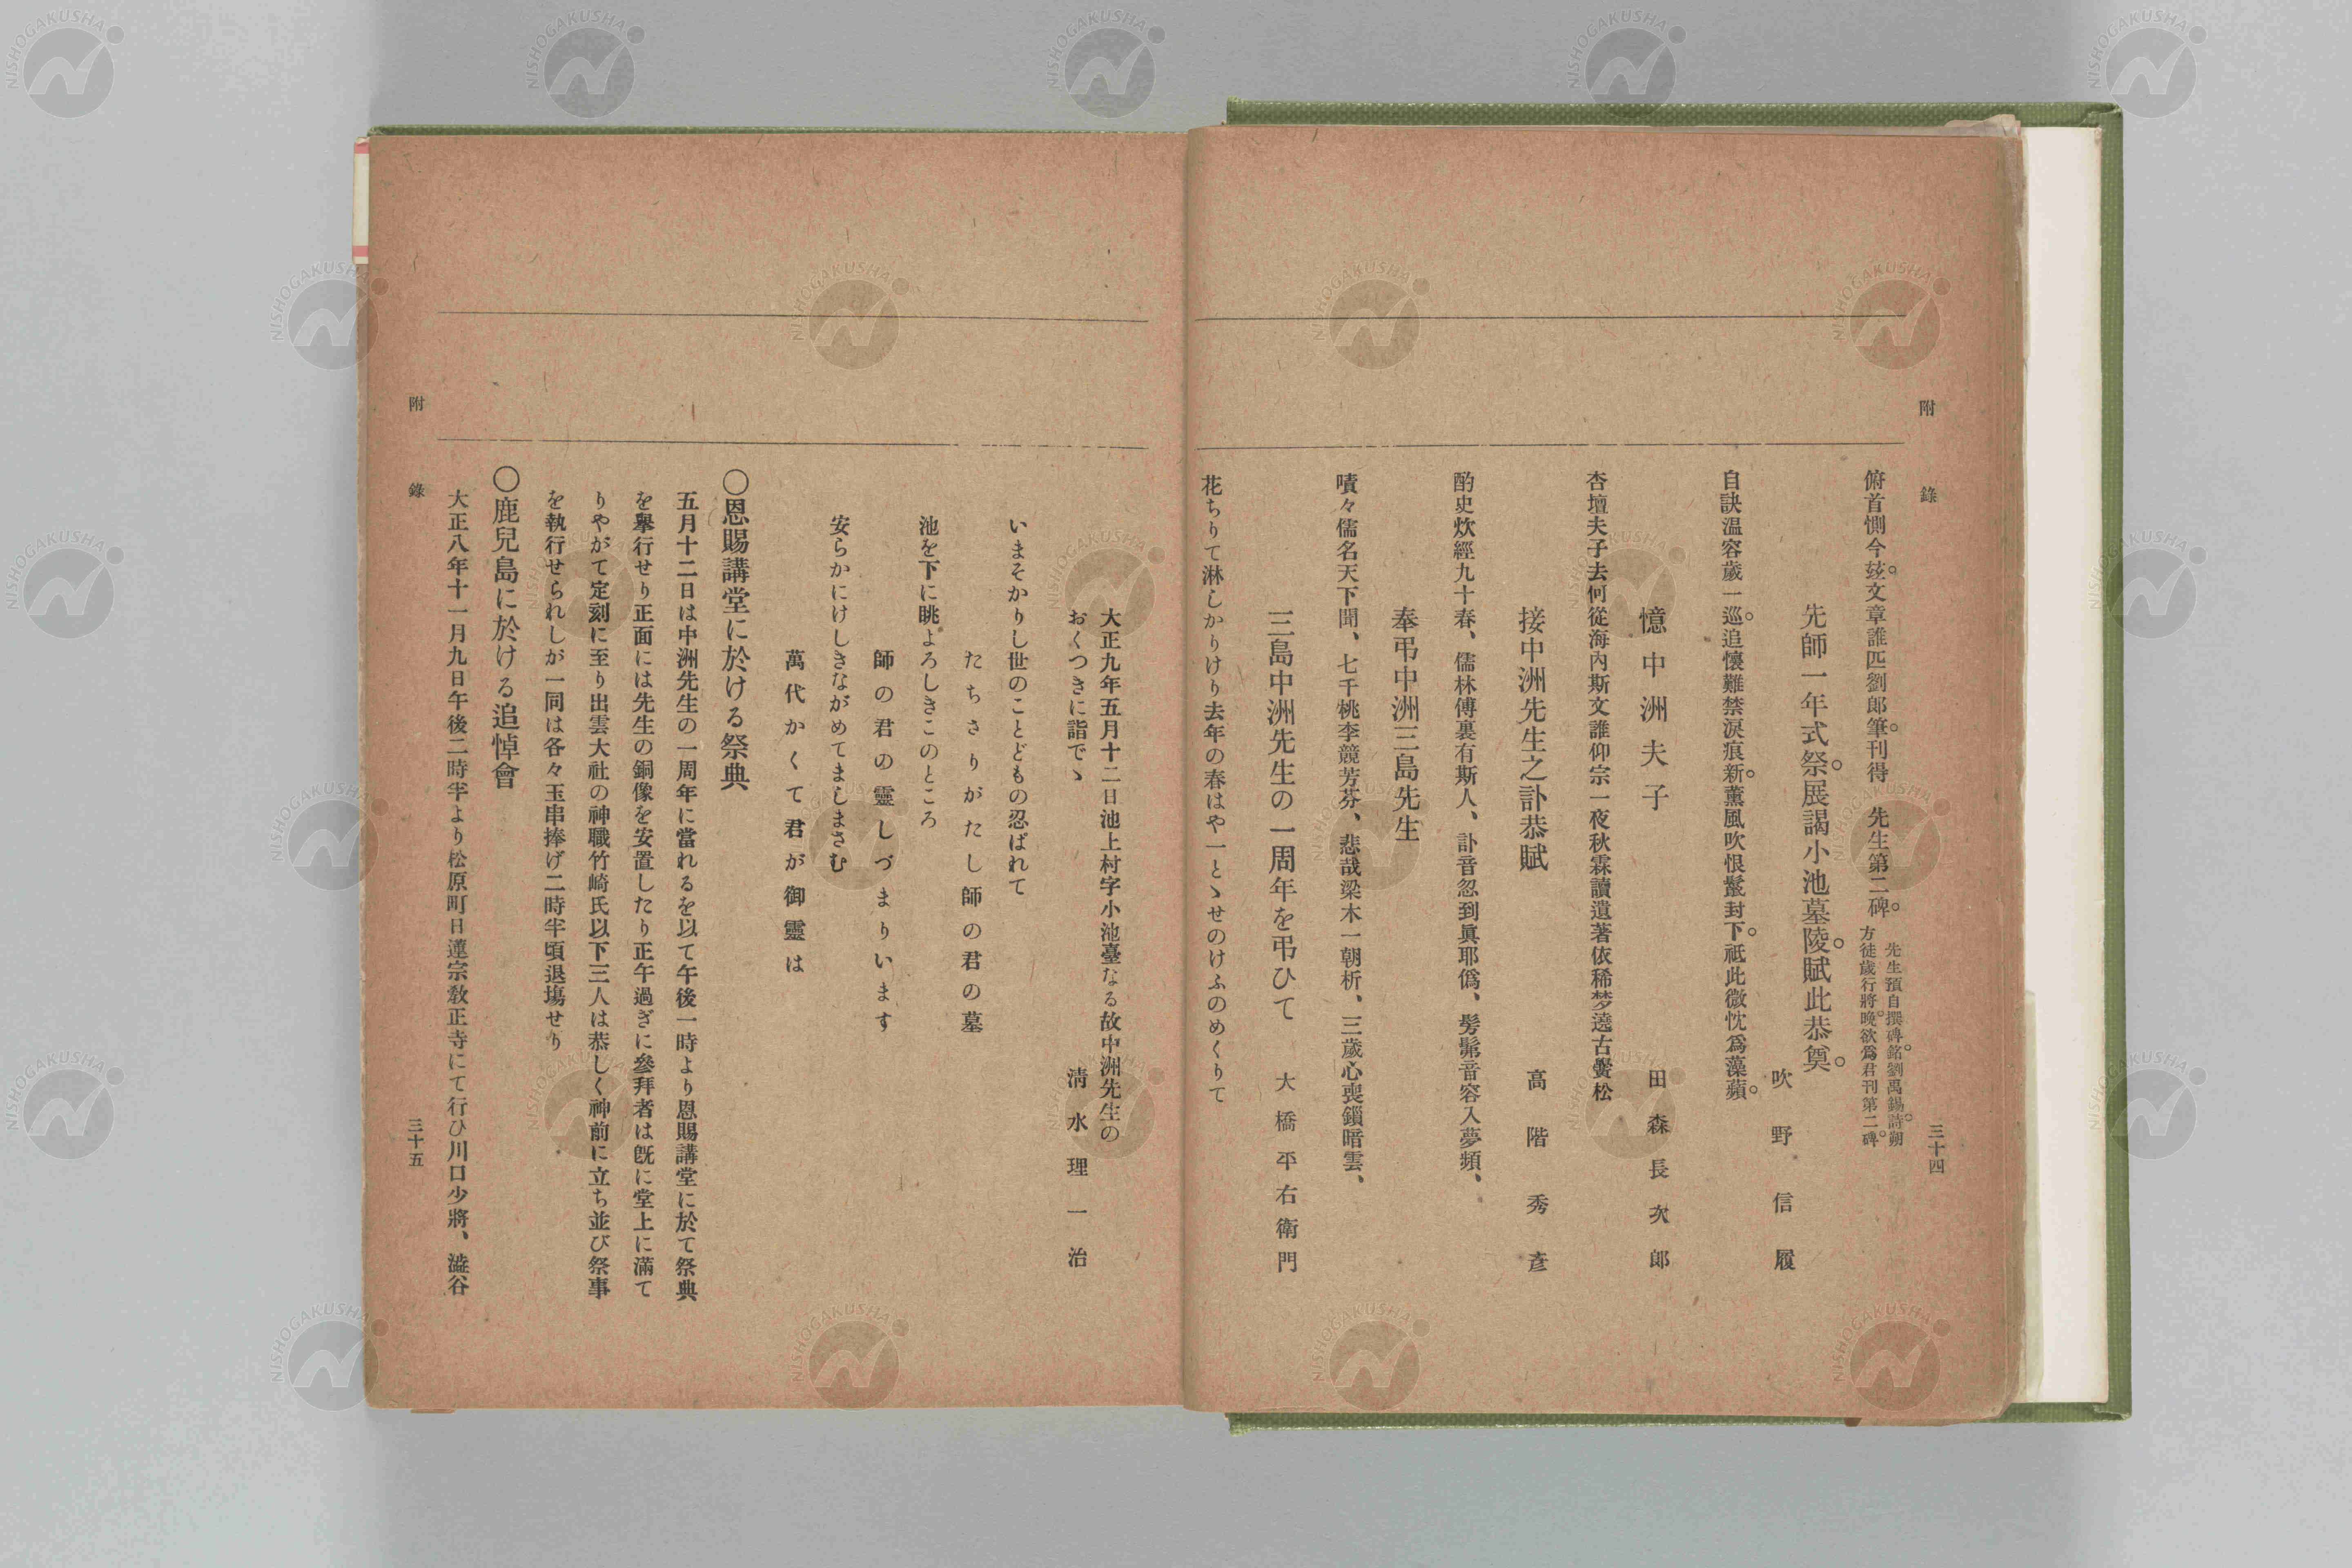 附錄
三十四
俯首惻今玆。文章誰匹劉郎筆。刊得　先生第二碑。
先生預自撰碑銘。劉禹錫詩。朔
方徒歲行將晩。欲爲君刊第二碑。
先師一年式祭。展謁小池墓陵。賦此恭奠。
吹野信履
自訣温容歲一巡。追懷難禁淚痕新。薰風吹恨鬘封下。祇此微忱爲藻蘋。
憶中洲夫子
田森長次郎
杏壇夫子去何從海內斯文誰仰宗一夜秋霖讀遺著依稀梦遶古黌松
接中洲先生之訃恭賦
高階秀彥
酌史炊經九十春、儒林傅裏有斯人、訃音忽到眞耶僞、髣髴音容入夢頻、
奉弔中洲三島先生
嘖々儒名天下聞、七千桃李競芳芬、悲哉梁木一朝析、三歲心喪鎻暗雲、
三島中洲先生の一周年を弔ひて
大橋平右衛門
花ちりて淋しかりけり去年の春はや一とゝせのけふのめくりて
大正九年五月十二日池上村字小池臺なる故中洲先生の
おくつきに詣でゝ
淸水理一治
いまそかりし世のことどもの忍ばれて
たちさりがたし師の君の墓
池を下に眺よろしきこのところ
師の君の靈しづまりいます
安らかにけしきながめてましまさむ
萬代かくて君が御靈は
〇恩賜講堂に於ける祭典
五月十二日は中洲先生の一周年に當れるを以て午後一時より恩賜講堂に於て祭典
を擧行せり正面には先生の銅像を安置したり正午過ぎに參拜者は旣に堂上に滿て
りやがて定刻に至り出雲大社の神職竹崎氏以下三人は恭しく神前に立ち並び祭事
を執行せられしが一同は各々玉串捧げ二時半頃退塲せり
〇鹿兒島に於ける追悼會
大正八年十一月九日午後二時半より松原町日蓮宗敎正寺にて行ひ川口少將、澁谷
附錄
三十五